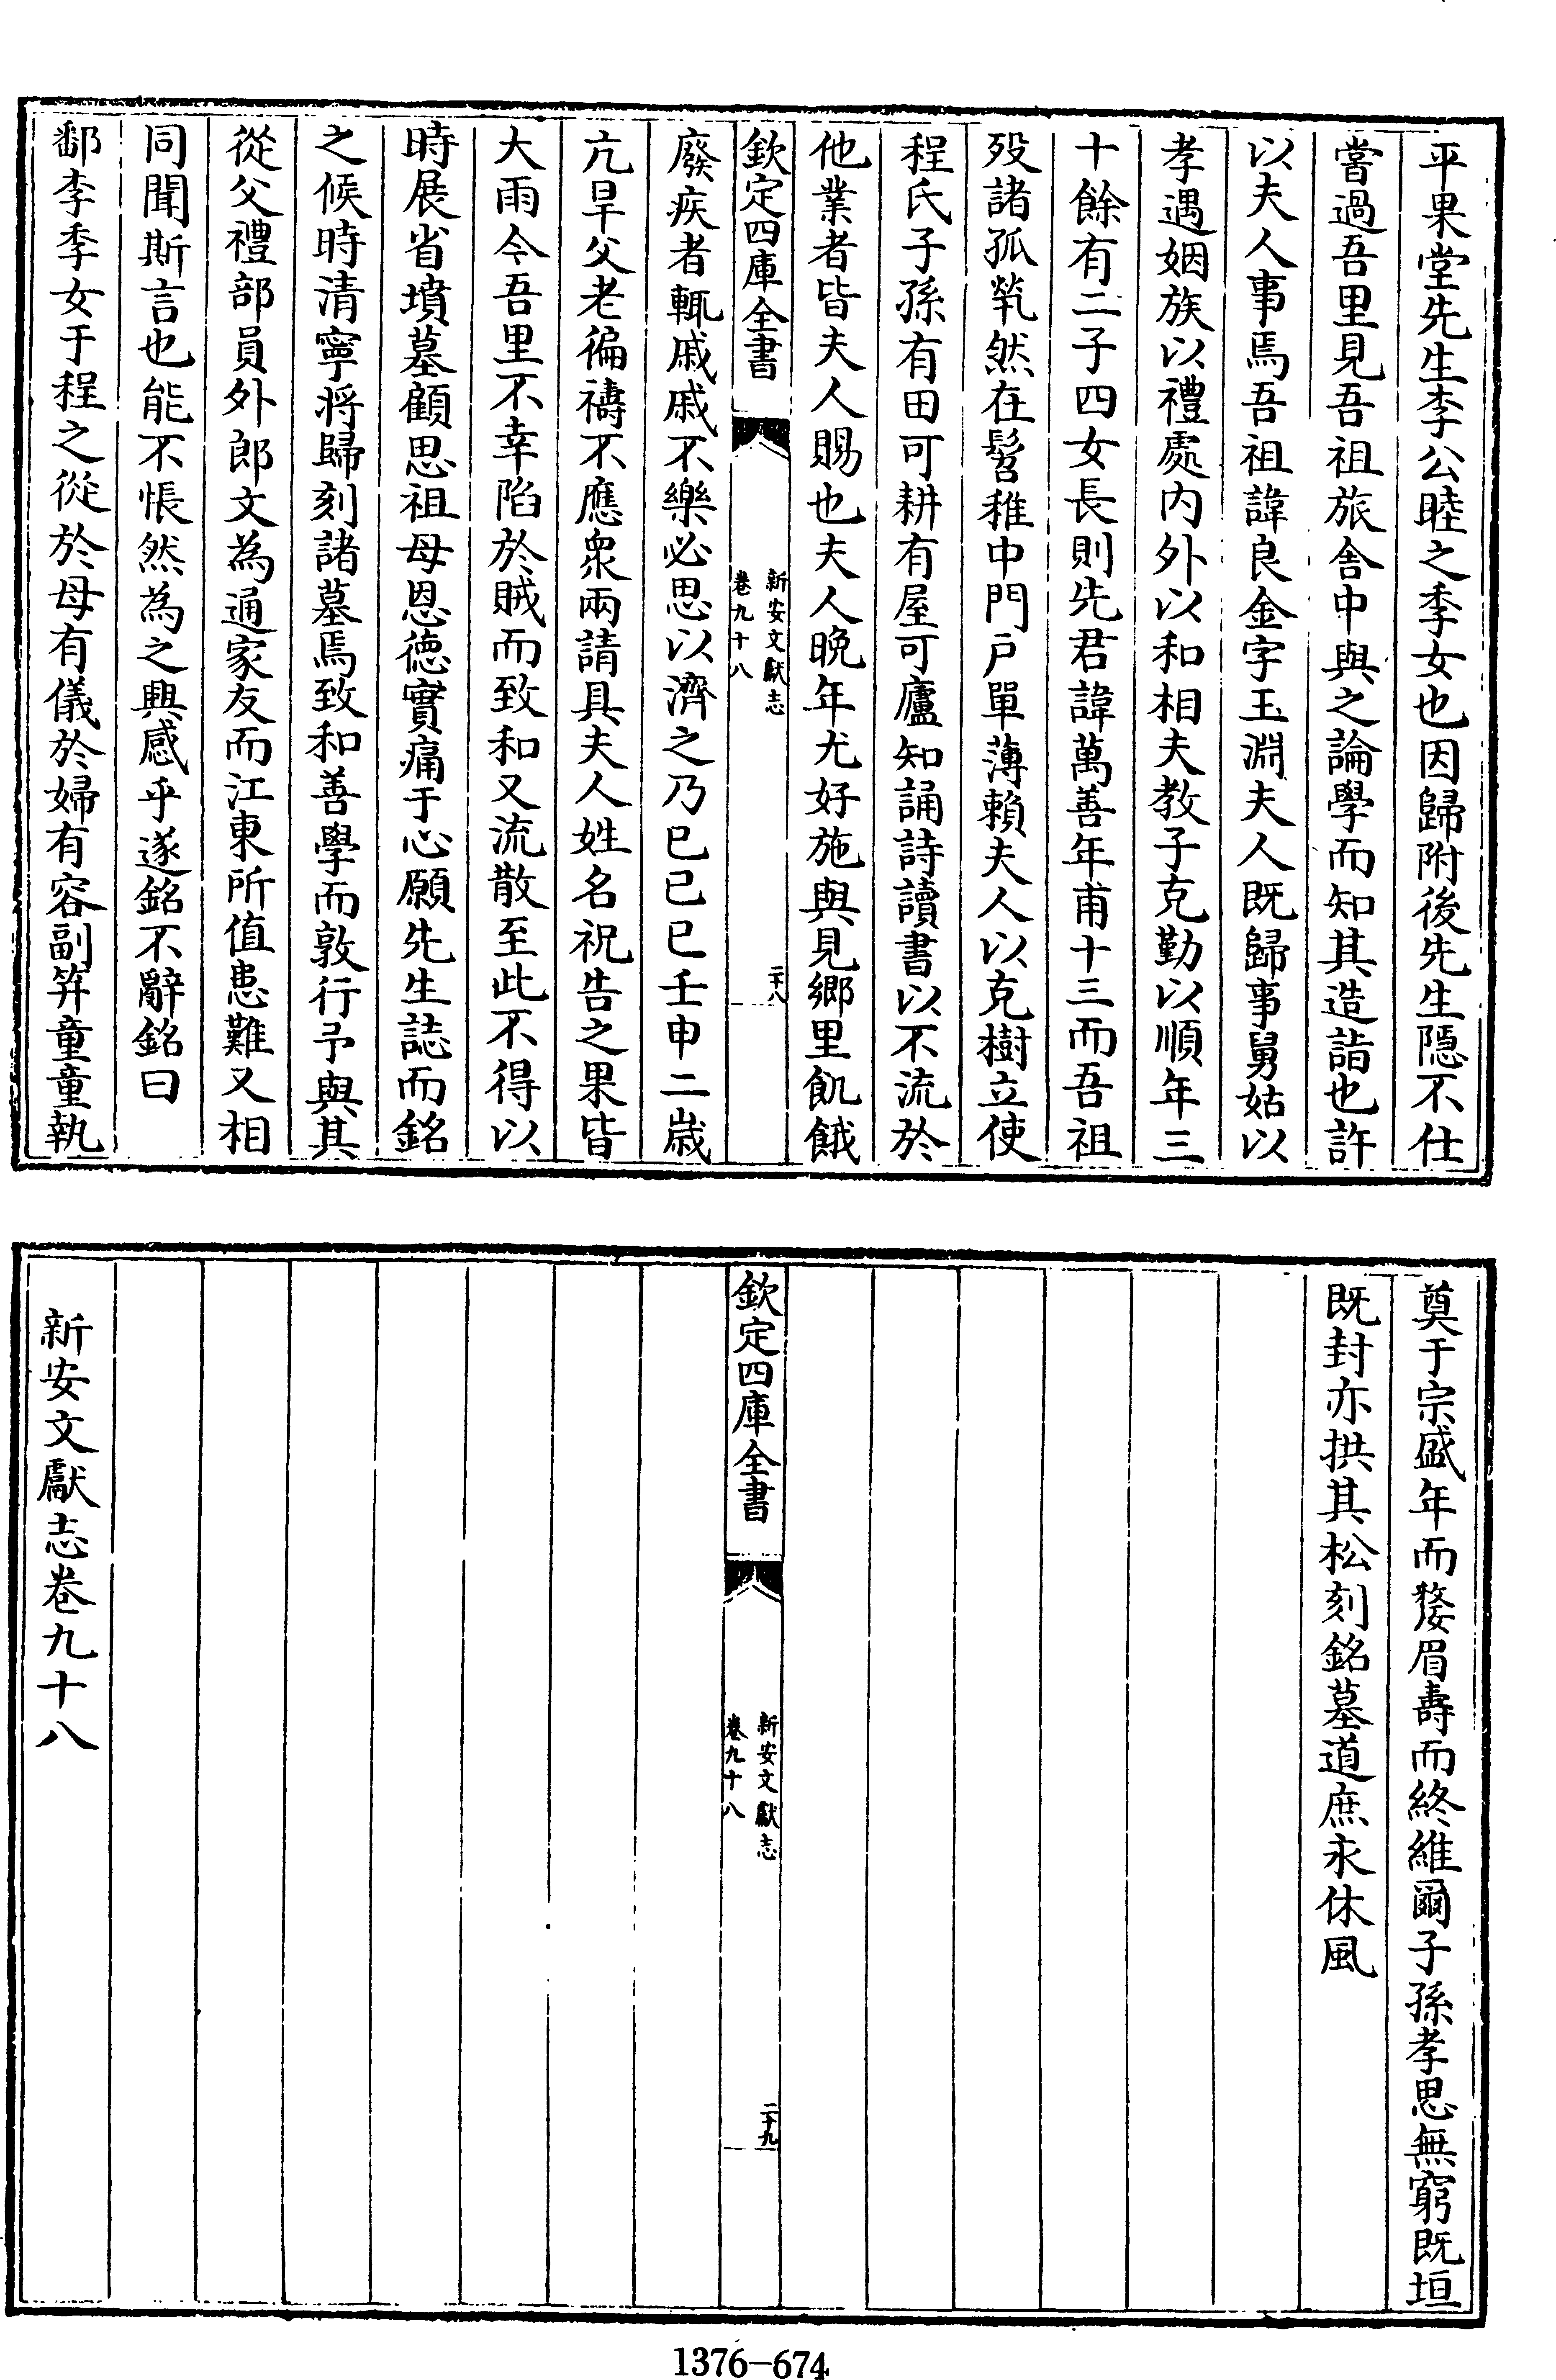 平果堂先生李公睦之季女也因歸附後先生隱不仕
嘗過吾里見吾祖旅舍中與之論學而知其造詣也許
以夫人事焉吾祖諱良金字玉淵夫人既歸事舅姑以
孝遇姻族以禮處内外以和相夫教子克勤以順年三
十餘有二子四女長則先君諱萬善年甫十三而吾祖
殁諸孤煢然在髫稚中門户單薄賴夫人以克樹立使
程氏子孫有田可耕有屋可廬知誦詩讀書以不流於
他業者皆夫人賜也夫人晩年尤好施與見鄉里飢餓
欽定四庫全書
新安文獻志
卷九十八
二十八
廢疾者輒戚戚不樂必思以濟之乃已已巳壬申二歳
亢旱父老徧禱不應衆兩請具夫人姓名祝告之果皆
大雨令吾里不幸陷於賊而致和又流散至此不得以
時展省墳墓顧思祖母恩徳實痛于心願先生誌而銘
之候時清寧将歸刻諸墓焉致和善學而敦行予與其
從父禮部員外郎文為通家友而江東所值患難又相
同聞斯言也能不悵然為之興感乎遂銘不辭銘曰
鄱李季女于程之從於母有儀於婦有容副笄童童執
奠于宗盛年而嫠眉壽而終維爾子孫孝思無窮既垣
既封亦拱其松刻銘墓道庶永休風
欽定四庫全書
新安文獻志
卷九十八
二十九
新安文獻志卷九十八
1376-674